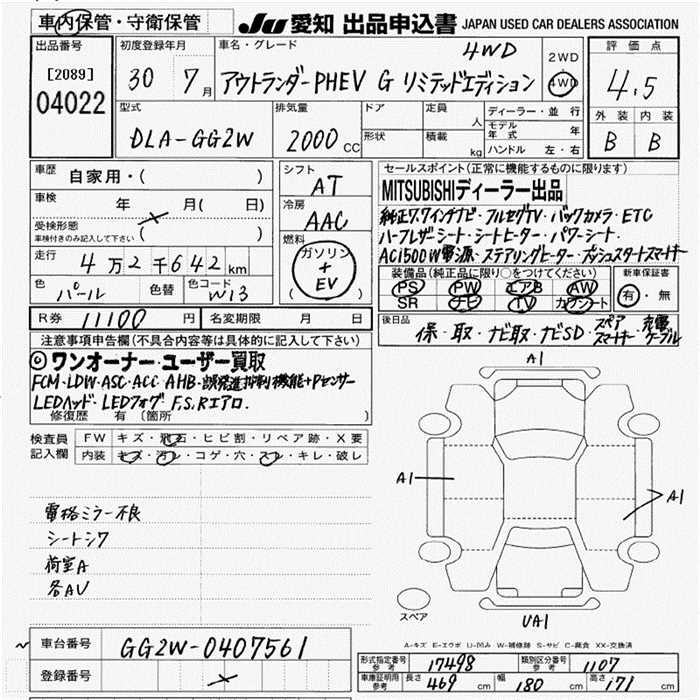 車内保管・守衛保管
JU 愛知 出品申込書 JAPAN USED CAR DEALERS ASSOCIATION
出品番号
[2089]
04022
初度登録年月
30 7月
車名・グレード
4WD
アウトランダーPHEV G リミテッドエディション
2WD
4WD
評価点
4.5
外装 内装
B B
型式
DLA-GG2W
排気量
2000 CC
ドア
定員
人
形状
積載
kg
ディーラー・並行
モデル年式 年
ハンドル 左・右
車歴
自家用・( )
車検
年 月( 日)
受検形態
車検付きのみ記入して下さい ( )
走行
4万2千642km
色
パール
色替
色コード
W13
シフト
AT
冷房
AAC
燃料
ガソリン
+
EV
( )
セールスポイント(正常に機能するものに限ります)
MITSUBISHIディーラー出品
純正7.7インチナビ・フルセグTV・バックカメラ・ETC
ハーフレザーシート・シートヒーター・パワーシート・
AC1500W電源・ステアリングヒーター・プッシュスタートスマートキー
装備品(純正品に限り○をつけてください)
PS PW エアB AW
SR ナビ TV カワシート
新車保証書
有・無
後日品
保・取・ナビ取・ナビSD・スペアスマートキー・充電ケーブル
R券 11100 円
名変期限 月 日
注意事項申告欄(不具合内容等は具体的に記入して下さい)
◎ワンオーナー・ユーザー買取
FCM・LDW・ASC・ACC・AHB・誤発進抑制機能+Pセンサー
LEDヘッド・LEDフォグ F,S,Rエアロ.
修復歴 有 〔箇所 〕
検査員記入欄
FW キズ・飛石・ヒビ割・リペア跡・X要
内装 キズ・汚レ・コゲ・穴・スレ・キレ・破レ
電格ミラー不良
シートシワ
荷室A
各AU
A1
A1
A1
UA1
スペア
A-キズ E-エクボ U-凹み W-補修跡 S-サビ C-腐食 XX-交換済
車台番号
GG2W-0407561
登録番号
形式指定番号参考 17498
類別区分番号参考 1107
車庫証明用参考 長さ 469 cm 幅 180 cm 高さ 171 cm